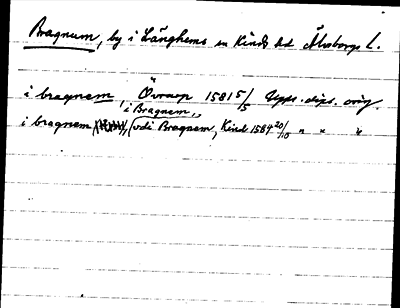 Bragnum, by i Länghems sn Kinds hd Älvsborgs l.
i bragnem, Övrarp 1581 5/5 Upps. dipl. orig.
i Bragnem,
i bragnem (vdi Bragnem, Kind 1584 20/10 " " "